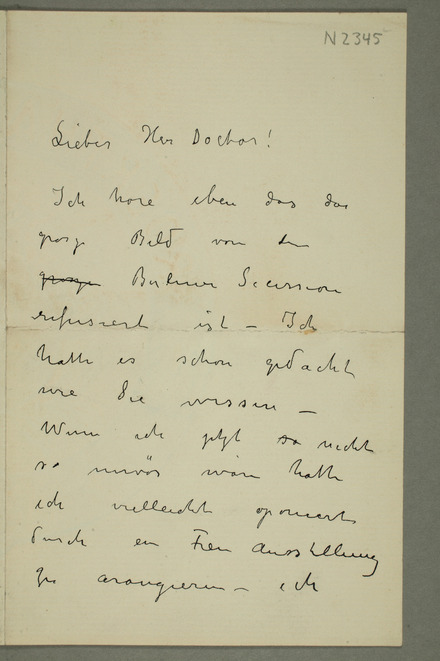 N 2345
Lieber Herr Doctor!
Ich höre eben das das
grosse Bild von der
grosse Berliner Secession
refusiert ist – Ich
hatte es schon gedacht
wie Sie wissen –
Wenn ich jetzt so nicht
so nervös wäre hatte
ich vielleicht oponiert
durch ein Frei Ausstellung
zu arangieren – ich